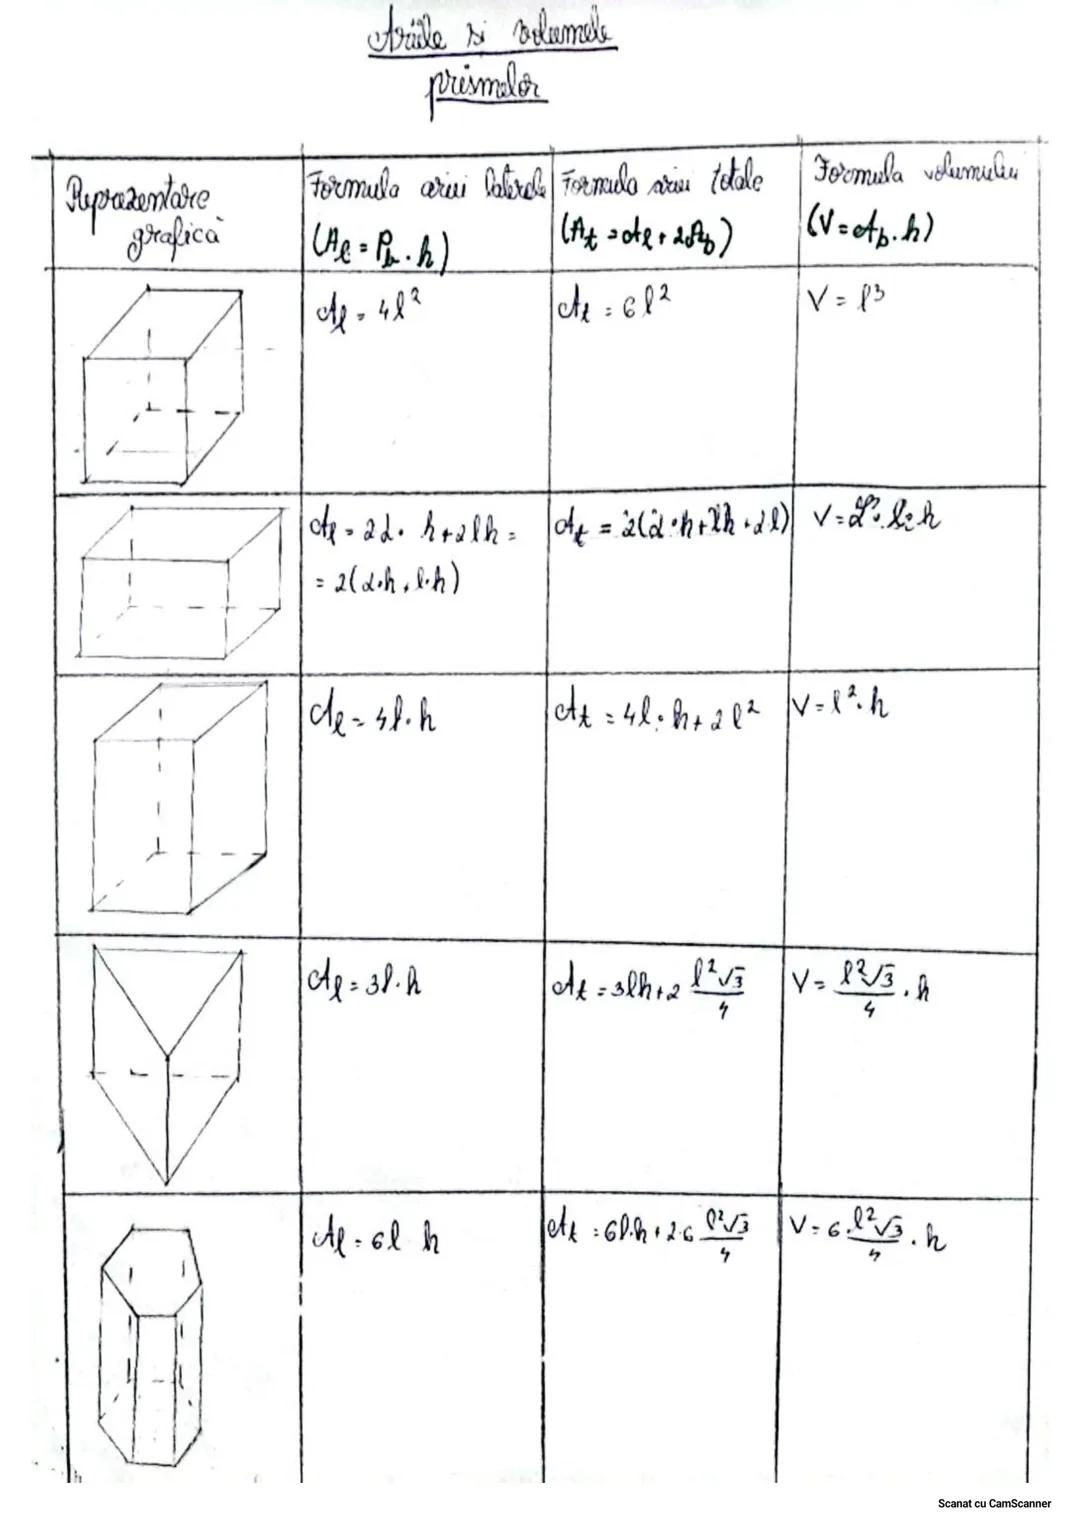 Ariile si volumele
prismelor
Reprezentare
grafică
Formula ariei laterale
(Al = Pb . h)
Formula ariei totale
(At = Al + 2Ab)
Formula volumului
(V = Ab . h)
Al = 4l²
At = 6l²
V = l³
Al = 2L . h + 2lh =
= 2(L.h + l.h)
At = 2(L.h + lh + Ll)
V = L . l . h
Al = 4l.h
At = 4l.h + 2l²
V = l².h
Al = 3l.h
At = 3lh + 2 l²√3/4
V = l²√3/4 . h
Al = 6l h
At = 6l.h + 2.6 l²√3/4
V = 6.l²√3/4 . h
Scanat cu CamScanner